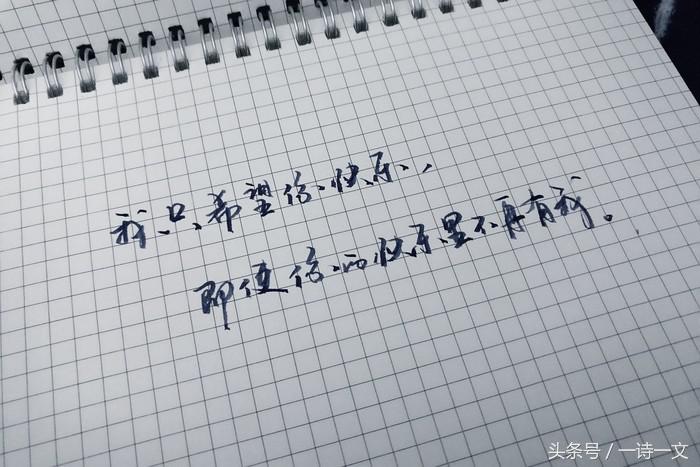 我只希望你快乐，
即使你的快乐里不再有我。
头条号 / 一诗一文